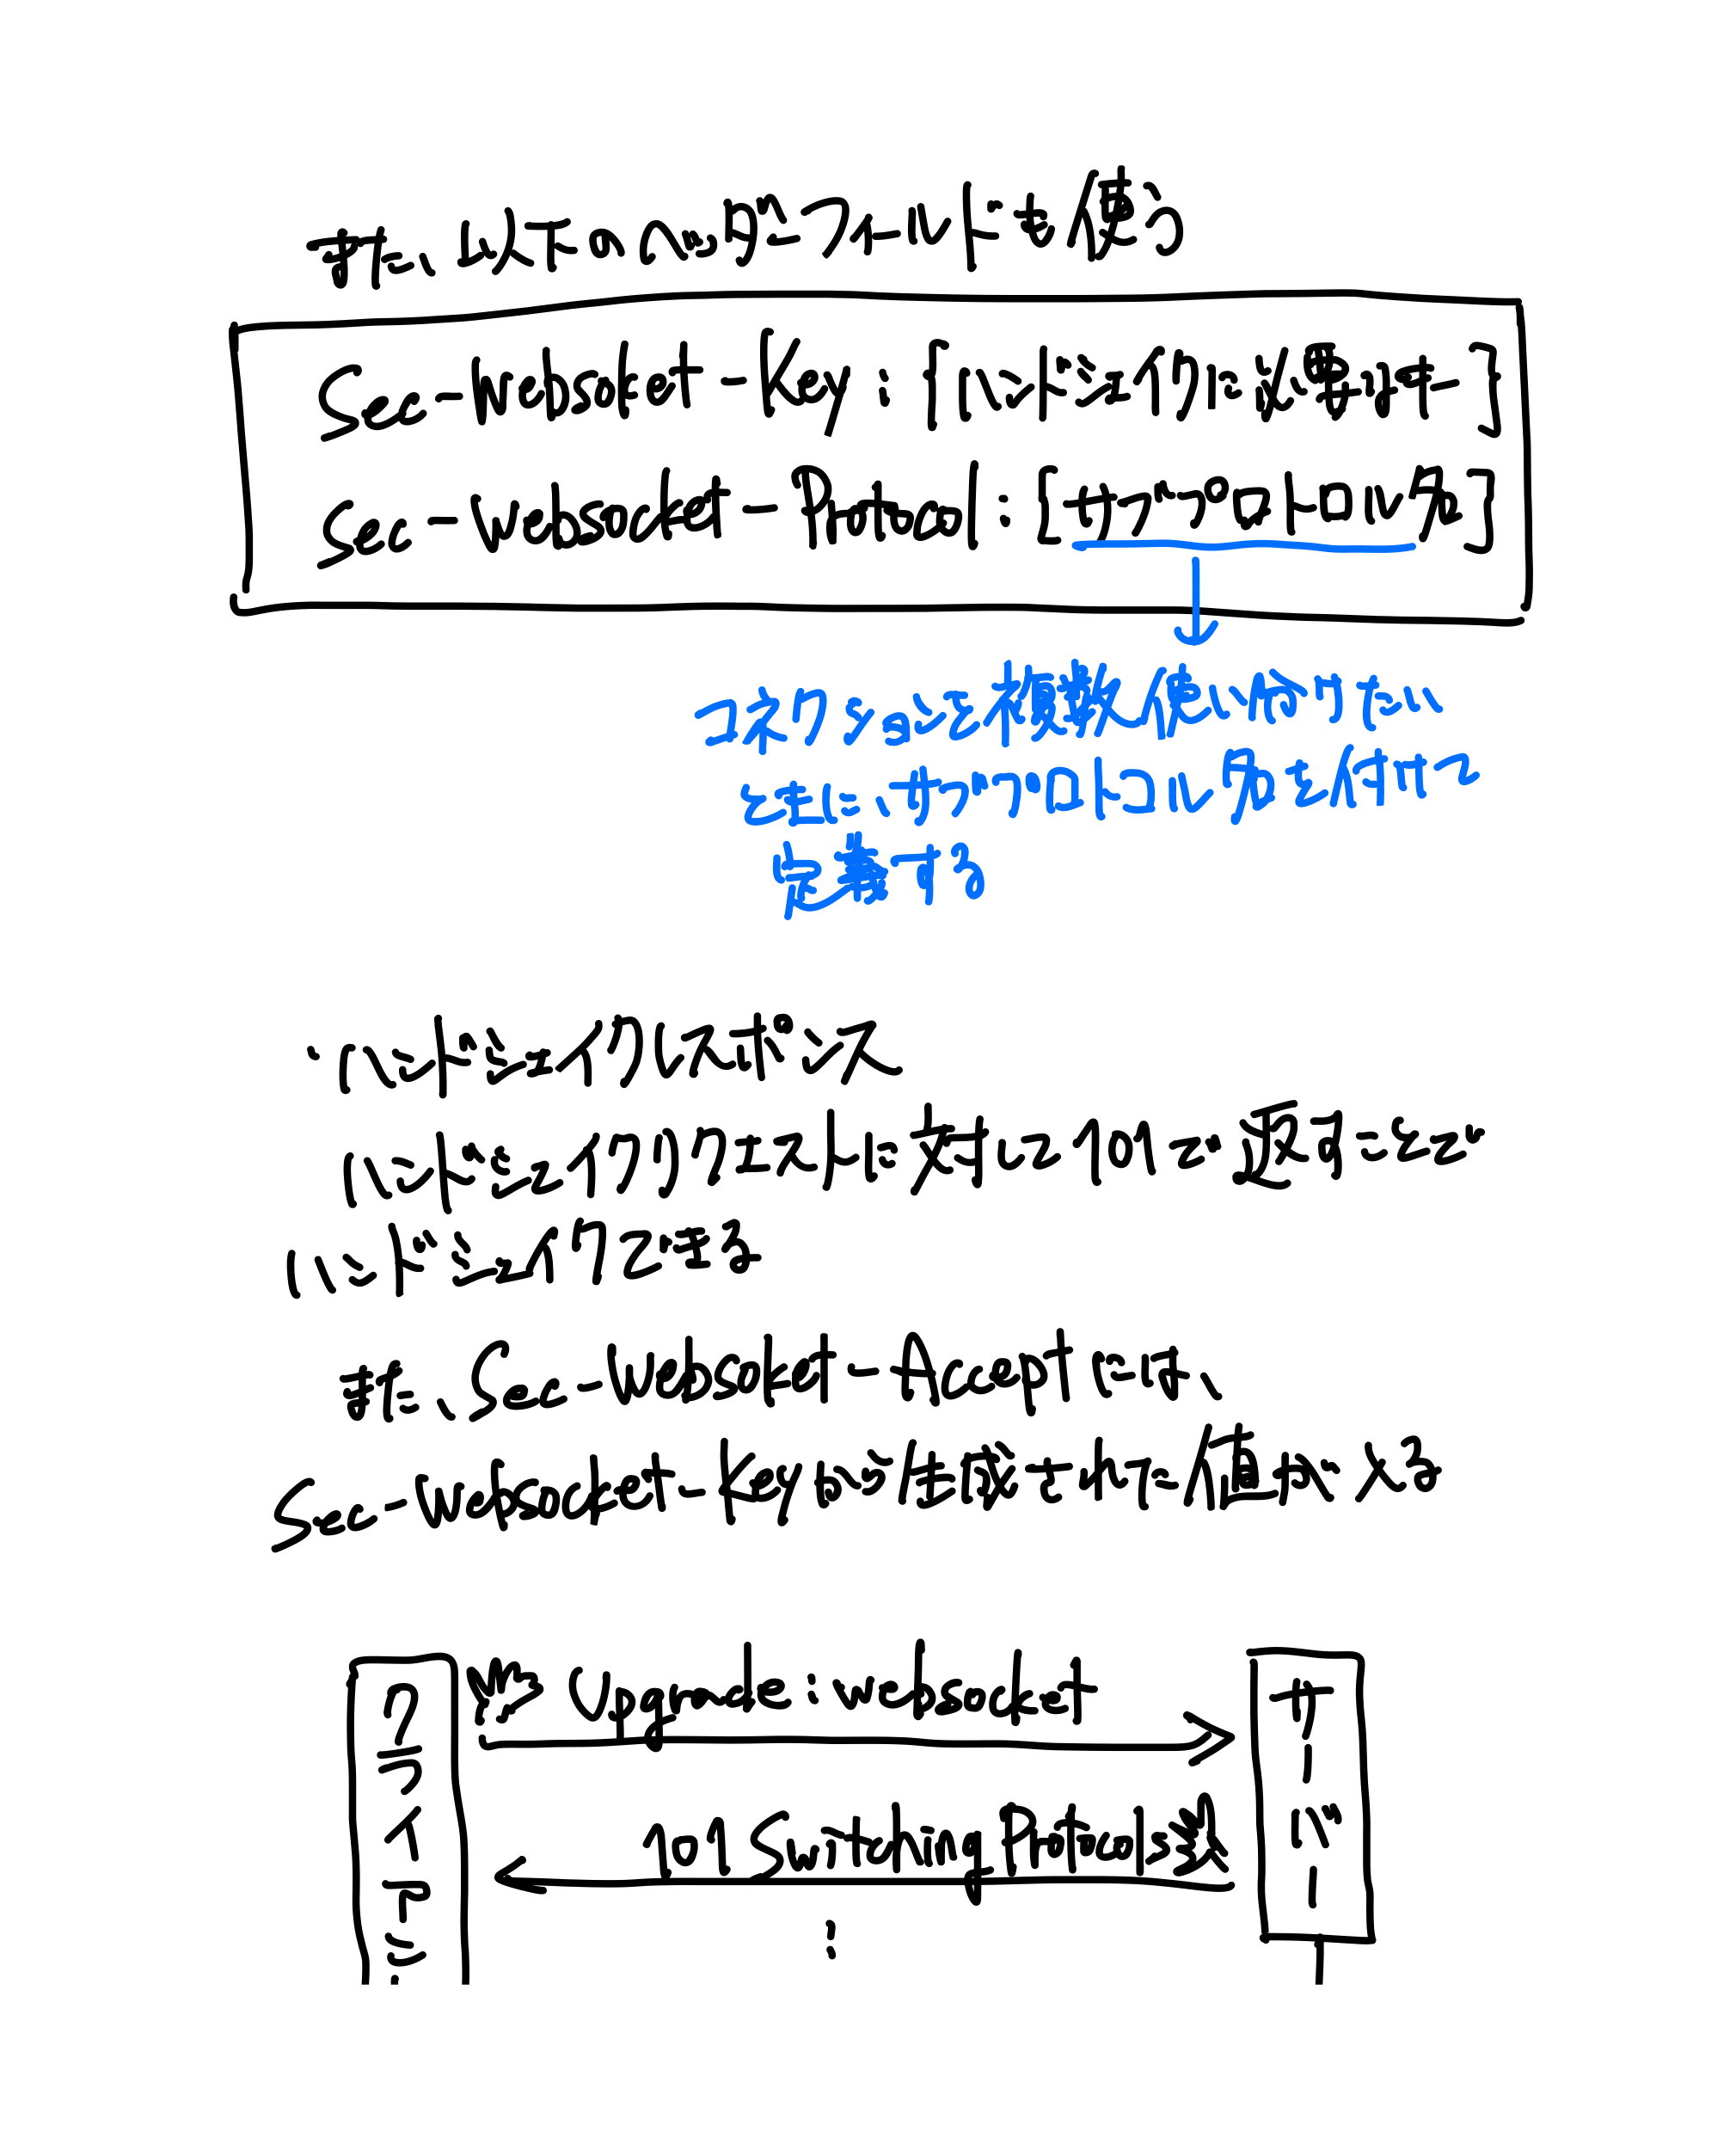 また、以下のヘッダフィールドも使う
Sec-Websocket-Key:[ハンドシェイクに必要なキー]
Sec-Websocket-Protocol:[サブプロトコル名]
コネクションを複数使い分けたい
ときに、サブプロトコル名を付けて
定義する
・ハンドシェイクレスポンス
ハンドシェイクリクエストに対して101で返すことで
ハンドシェイクできる
また、Sec-Websocket-Acceptには、
Sec-Websocket-Keyから生成された値が入る
Upgrade:websocket
101 Switching Protocols
クライアン
サーバー